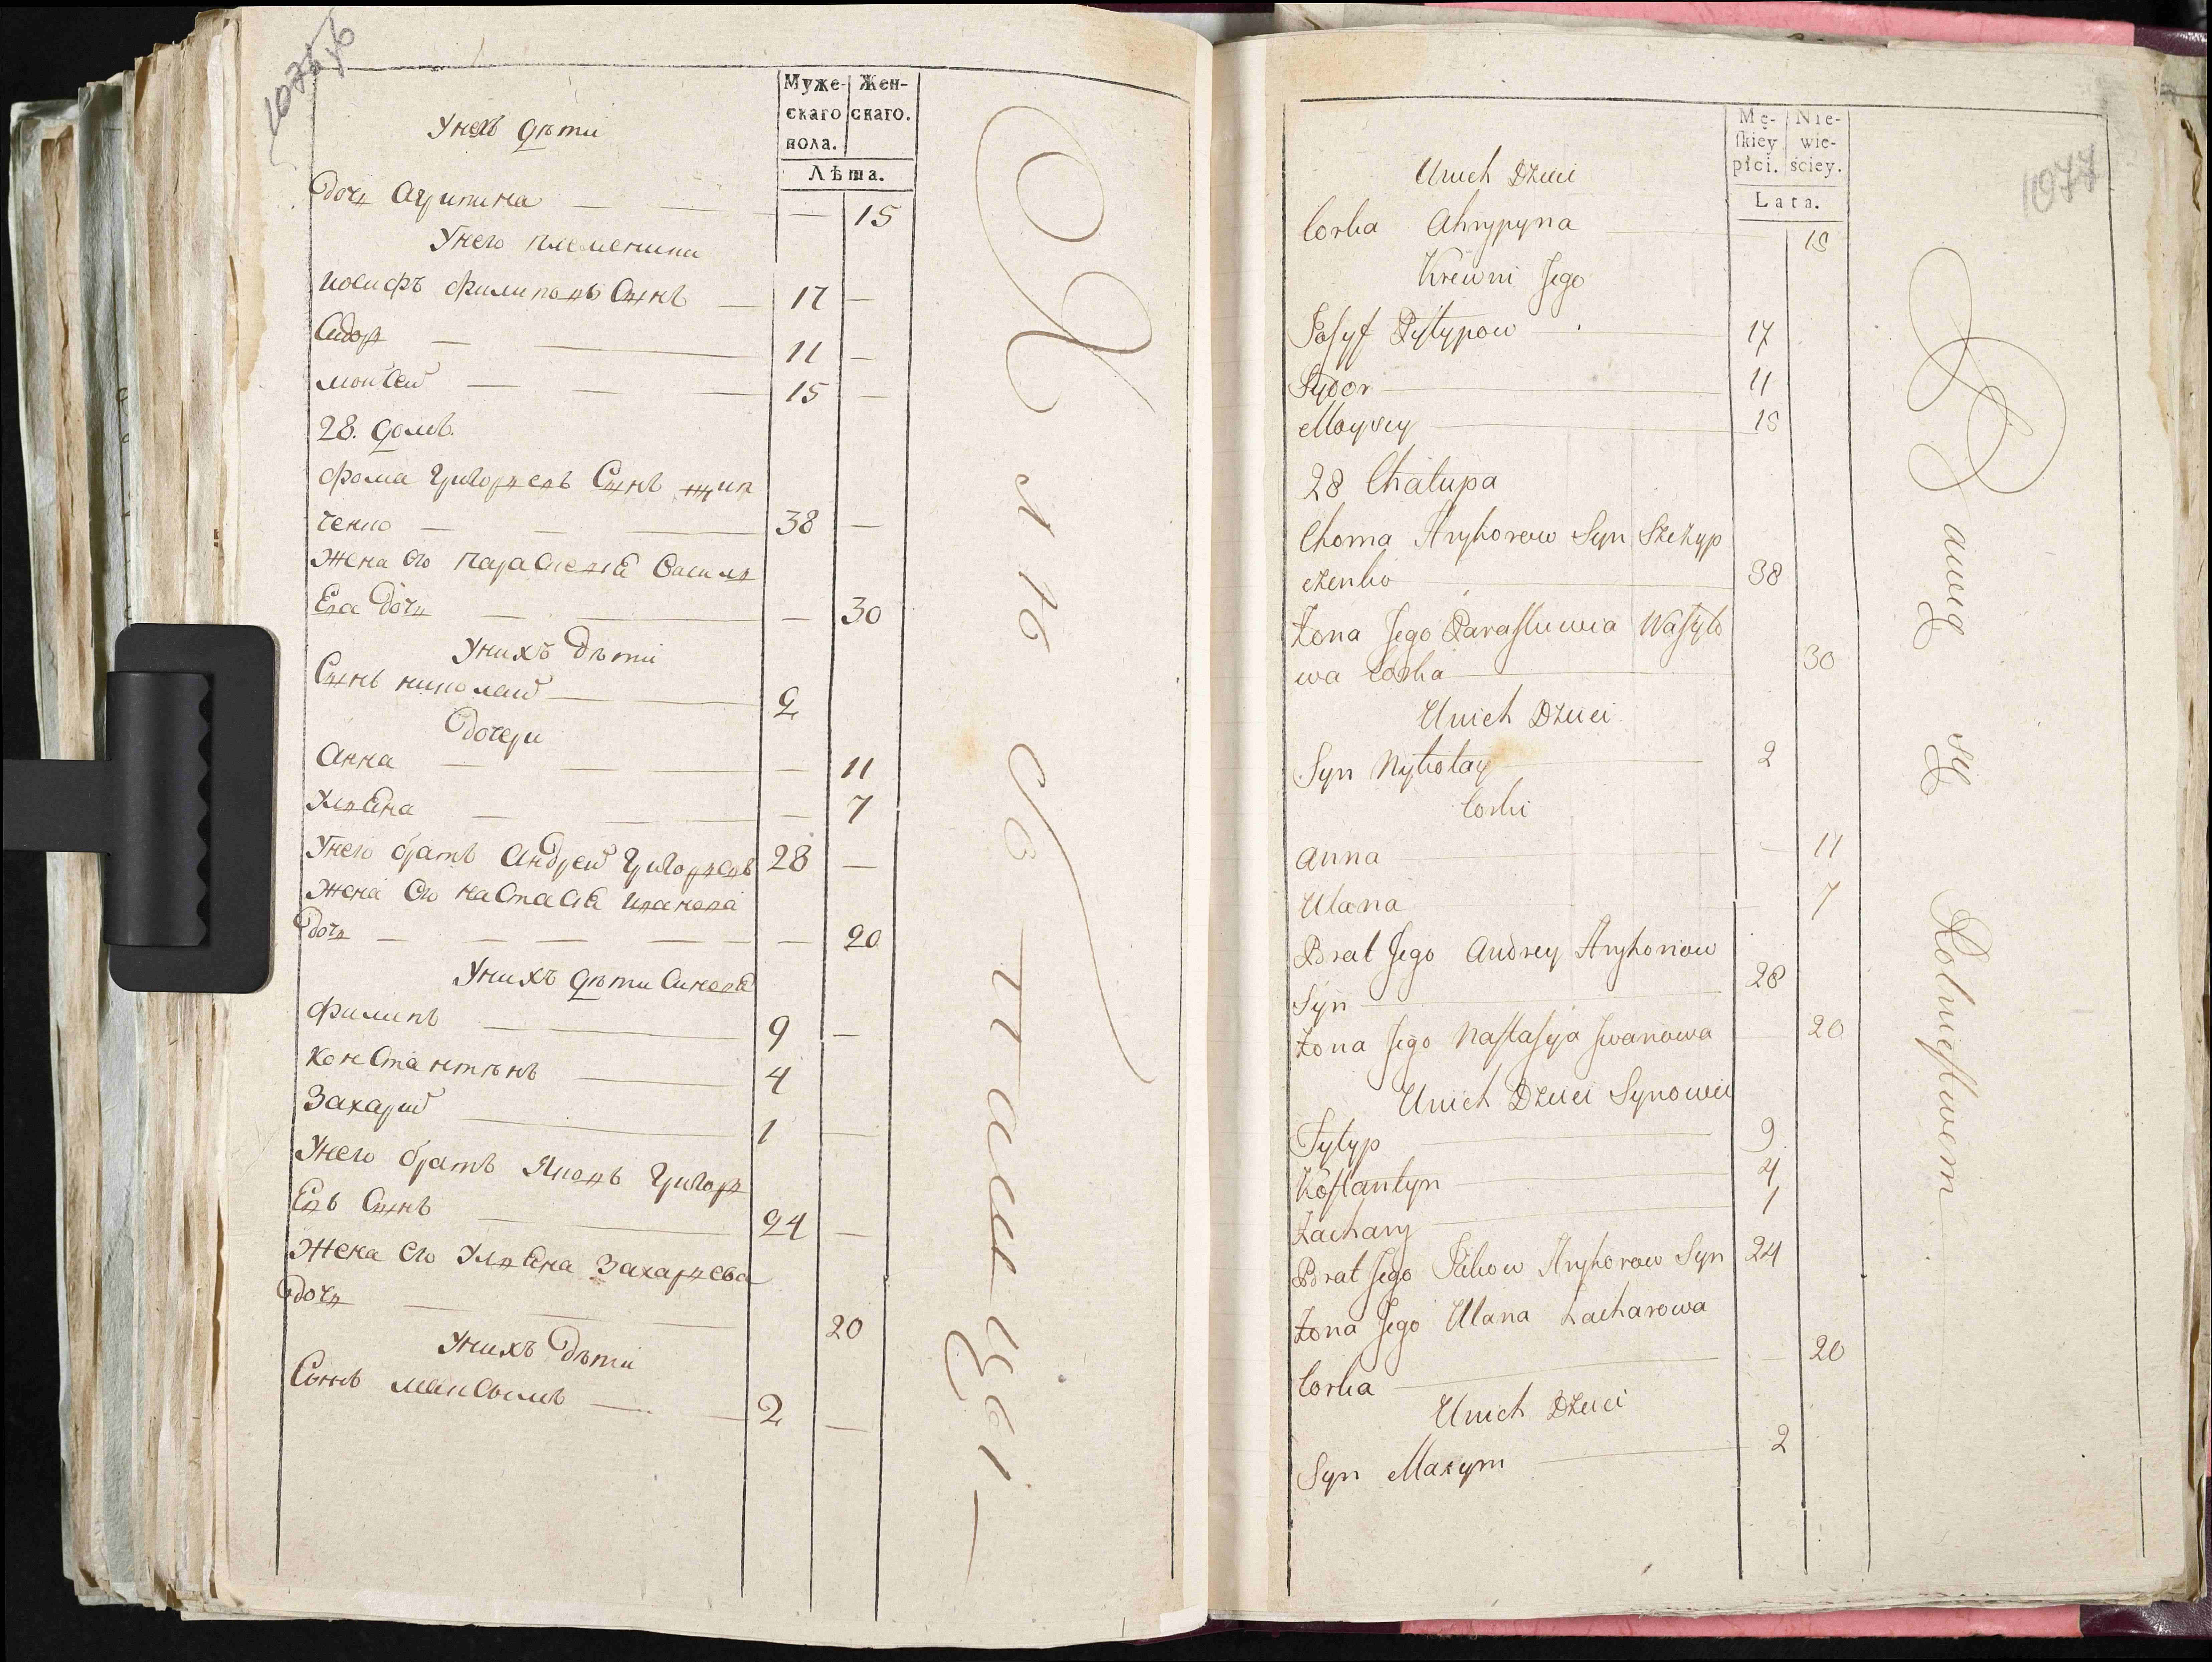 1076 об
Муже- Жен-
скаго скаго.
пола.
Лѣта.
Унихъ дѣти
Дочь Агрипина — — 15
Унего племеники
Иосифъ Филиповъ Сынъ — 17 —
Сидоръ — 11 —
Мойсей — 15 —
28. домъ.
Фома Григорьевъ Сынъ
ченко — 38 —
Жена его Параскевія Василь
Ева дочь — — 30
Унихъ дѣти
Сынъ николай — 2
Дочери
Анна — — 11
Ульяна — — 7
Унего братъ Андрей Григорьевъ 28 —
Жена его настасія Иванова
Дочь — — 20
Унихъ дѣти Синовя
Филипъ — 9 —
Константинъ — 4
Захарій — 1 —
Унего братъ Яковъ Григорь
Евъ Сынъ — 24 —
Жена его Ульяна Захарьева
Дочь — 20
Унихъ дѣти
Сынъ Максымъ — 2 —
1077
Mę- Nie-
ſkiey wie-
płci. ściey.
Lata.
Unich Dzieci
Corka Ahrypyna — 15
Krewni Jego
Josyf Pylypow — 17
Sydor — 11
Moysey — 15
28 Chałupa
Choma Hryhorow Syn Szczyp
czenko — 38
Żona Jego Paraskiewia Wasylo
wa Corka — 30
Unich Dzieci
Syn Nykołay — 2
Corki
Anna — 11
Ulana — 7
Brat Jego Andrey Hryhoriow
Syn — 28
Żona Jego Nastasya Jwanowa — 20
Unich Dzieci Synowie
Fylyp — 9
Kostantyn — 4
Zachary — 1
Brat Jego Jakow Hryhorow Syn 24
Żona Jego Ulana Zacharowa
Corka — 20
Unich Dzieci
Syn Maxym — 2
Bawią się Rolnictwem